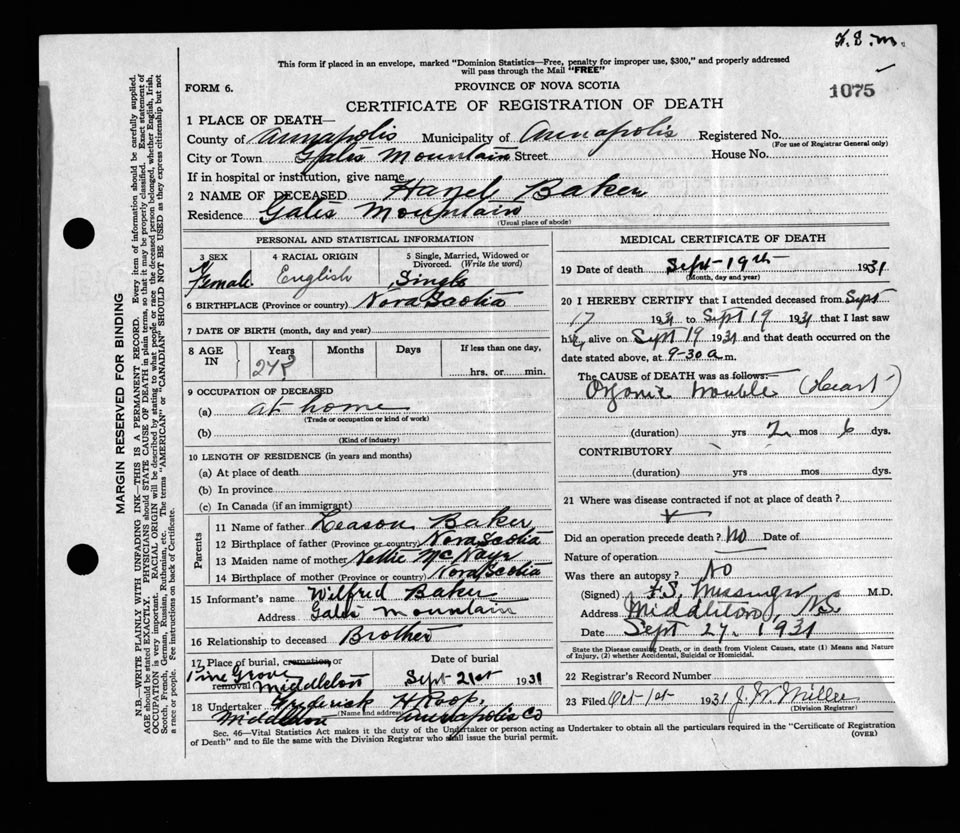 F. E. M.
This form if placed in an envelope, marked "Dominion Statistics—Free, penalty for improper use, $300," and properly addressed
will pass through the Mail "FREE"
FORM 6.
PROVINCE OF NOVA SCOTIA
1075
CERTIFICATE OF REGISTRATION OF DEATH
1 PLACE OF DEATH—
County of Annapolis Municipality of Annapolis Registered No.
(For use of Registrar General only)
City or Town Gates Mountain Street House No.
If in hospital or institution, give name
2 NAME OF DECEASED Hazel Baker
Residence Gates Mountain
(Usual place of abode)
PERSONAL AND STATISTICAL INFORMATION
3 SEX
Female
4 RACIAL ORIGIN
English
5 Single, Married, Widowed or
Divorced. (Write the word)
Single
6 BIRTHPLACE (Province or country) Nova Scotia
7 DATE OF BIRTH (month, day and year)
8 AGE IN
Years
Months
Days
If less than one day,
hrs. or min.
24?
9 OCCUPATION OF DECEASED
(a) at home
(Trade or occupation or kind of work)
(b)
(Kind of industry)
10 LENGTH OF RESIDENCE (in years and months)
(a) At place of death
(b) In province
(c) In Canada (if an immigrant)
Parents
11 Name of father Leason Baker
12 Birthplace of father (Province or country) Nova Scotia
13 Maiden name of mother Nettie McNayr
14 Birthplace of mother (Province or country) Nova Scotia
15 Informant's name Wilfred Baker
Address Gates Mountain
16 Relationship to deceased Brother
17 Place of burial, cremation or
removal
Pine Grove
Middleton
Date of burial
Sept 21st 1931
18 Undertaker Frederick H Roop,
(Name and address)
Middleton Annapolis Co
MEDICAL CERTIFICATE OF DEATH
19 Date of death Sept 19th 1931
(Month, day and year)
20 I HEREBY CERTIFY that I attended deceased from Sept
17 1931 to Sept 19 1931 that I last saw
her alive on Sept 19 1931 and that death occurred on the
date stated above, at 9-30 a m.
The CAUSE OF DEATH was as follows:
Organic trouble (Heart)
(duration) yrs 2 mos 6 dys.
CONTRIBUTORY
(duration) yrs mos dys.
21 Where was disease contracted if not at place of death?
Did an operation precede death? No Date of
Nature of operation
Was there an autopsy? No
(Signed) F. S. Messenger M.D.
Address Middleton, N.S.
Date Sept 27. 1931
State the Disease causing Death, or in death from Violent Causes, state (1) Means and
Nature of Injury, (2) whether Accidental, Suicidal or Homicidal.
22 Registrar's Record Number
23 Filed Oct 1st 1931 J. W. Miller
(Division Registrar)
Sec. 46—Vital Statistics Act makes it the duty of the Undertaker or person acting as Undertaker to obtain all the particulars required in the "Certificate of Registration
of Death" and to file the same with the Division Registrar who shall issue the burial permit.
(OVER)
MARGIN RESERVED FOR BINDING
N.B.—WRITE PLAINLY WITH UNFADING INK—THIS IS A PERMANENT RECORD. Every item of information should be carefully supplied.
AGE should be stated EXACTLY. PHYSICIANS should STATE CAUSE OF DEATH in plain terms, so that it may be properly classified. Exact statement of
OCCUPATION is very important. RACIAL ORIGIN will be described by stating to what people or race the deceased person belonged, whether English, Irish,
Scotch, French, German, Russian, Ruthenian, etc. The terms "AMERICAN" or "CANADIAN" SHOULD NOT BE USED as they express citizenship but not
a race or people. See instructions on back of Certificate.